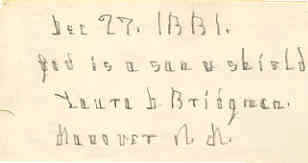 Dec 27. 1881.
God is a sun & shield
Laura D. Bridgman.
Hanover N. H.